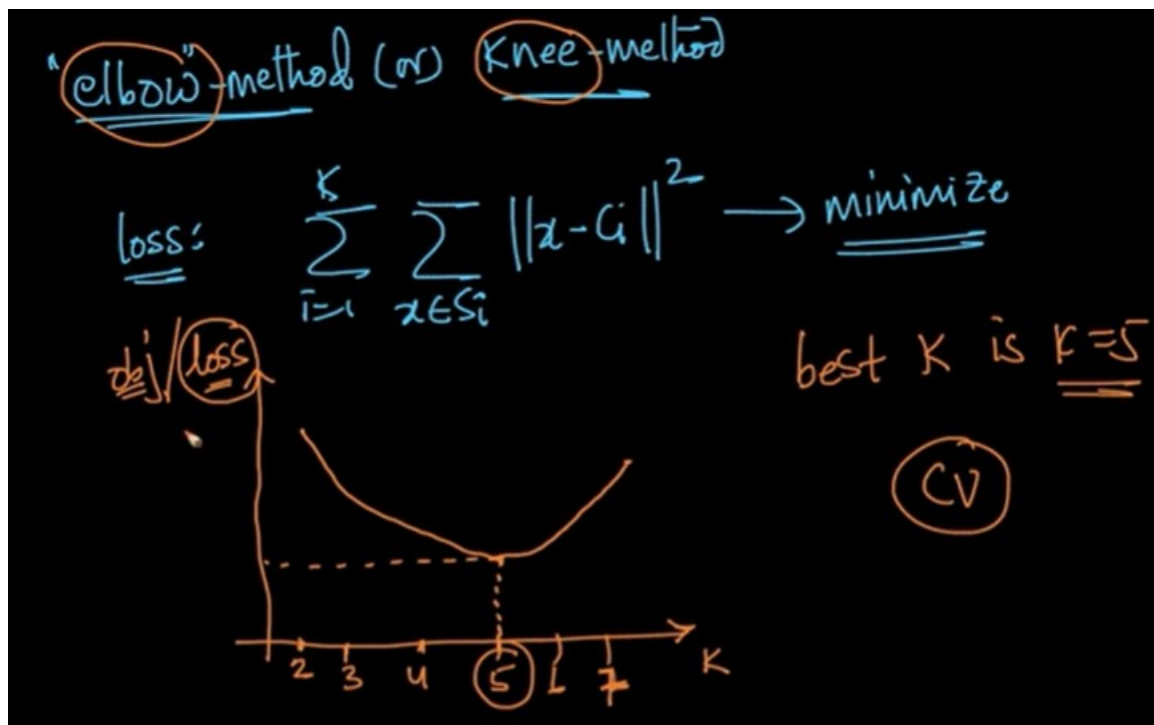 "elbow"-method (or) Knee-method
K
loss: Σ Σ ||x-Ci||² → minimize
i=1 x∈Si
obj/loss
best K is K=5
CV
2 3 4 5 6 7 K